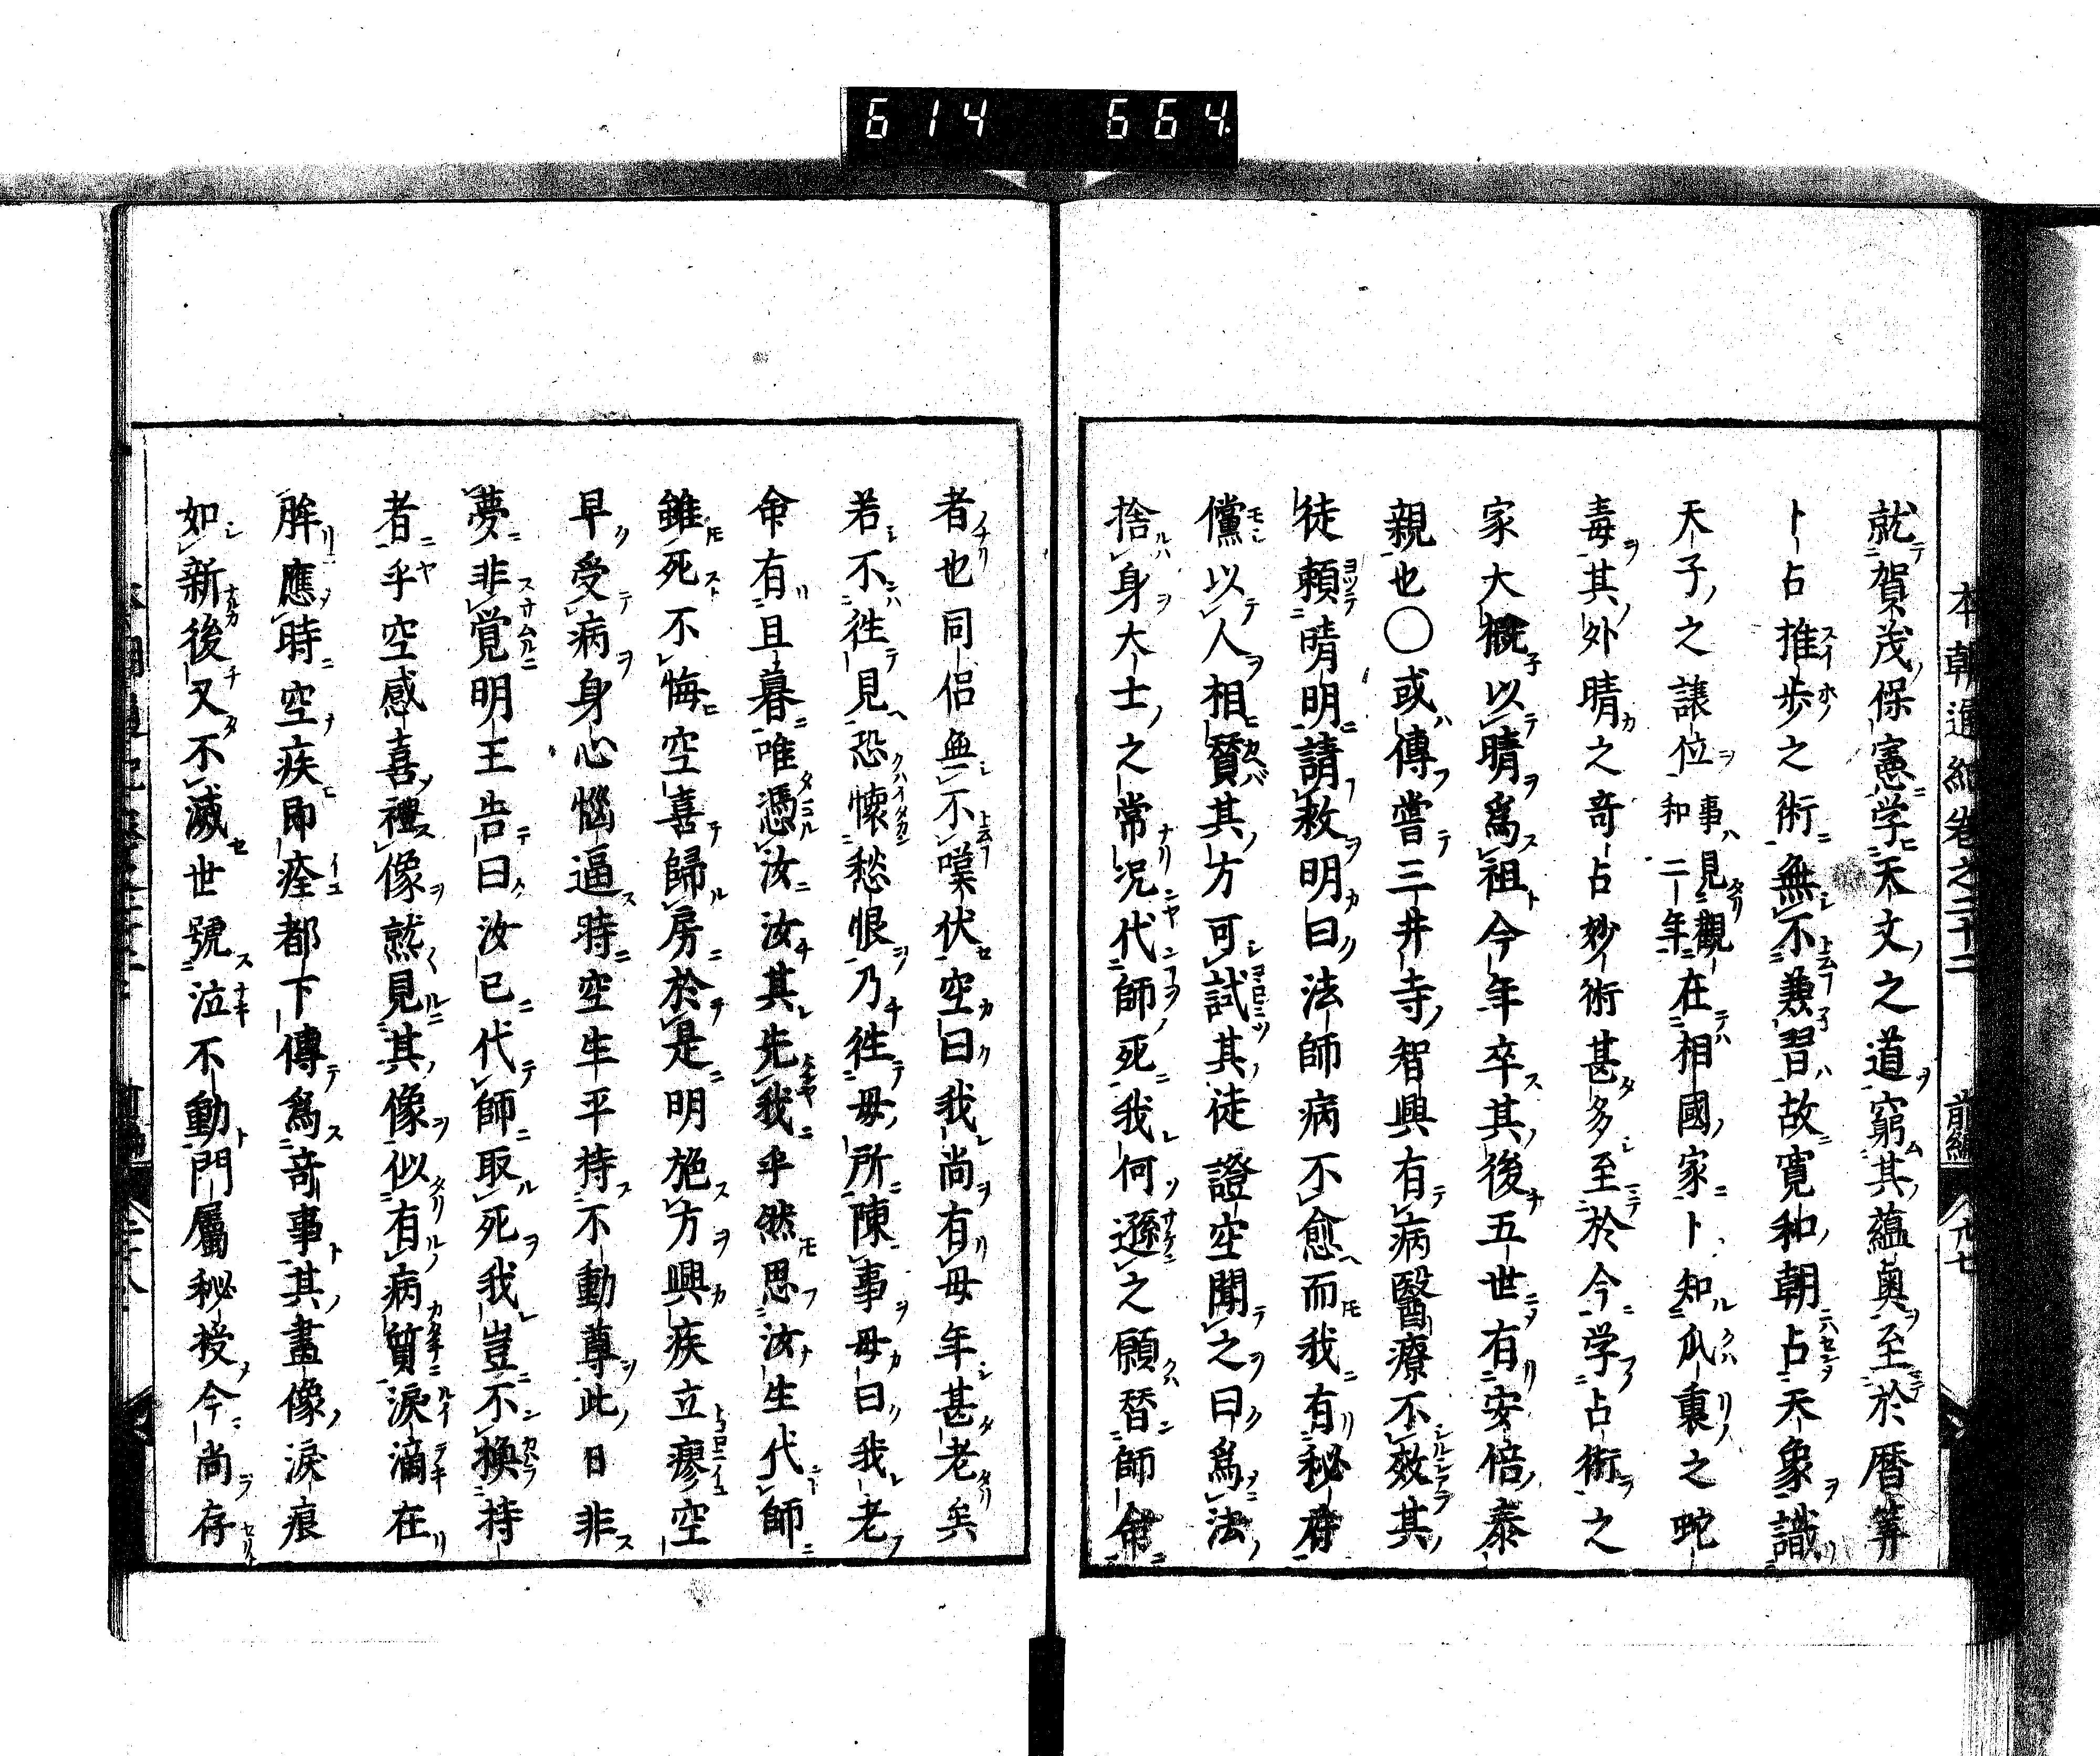 614 664
本朝通紀卷之二十二 前編 廿七
就賀茂保憲学天文之道窮其蘊奧至於暦筭
卜占推歩之術無不兼習故寛和朝占天象識
天子之譲位事見觀和二年在相國家卜知瓜裏之蛇
毒其外晴之奇占妙術甚多至於今学占術之
家大概以晴爲祖今年卒其後五世有安倍泰
親也〇或傳嘗三井寺智興有病醫療不效其
徒頼晴明請救明曰法師病不愈而我有秘符
儻以人相貿其方可試其徒證空聞之曰爲法
捨身大士之常况代師死我何遜之願替師命
者也同侶無不嘆伏空曰我尚有母年甚老矣
若不徃見恐懐愁恨乃徃母所陳事母曰我老
命有且暮唯憑汝汝其先我乎然思汝生代師
雖死不悔空喜歸房於是明施方興疾立瘳空
早受病身心惱逼時空生平持不動尊此日非
夢非覚明王告曰汝已代師取死我豈不換持
者乎空感喜禮像就見其像似有病質涙滴在
眸應時空疾即痊都下傳爲奇事其畫像涙痕
如新後又不滅世號泣不動門屬秘授今尚存